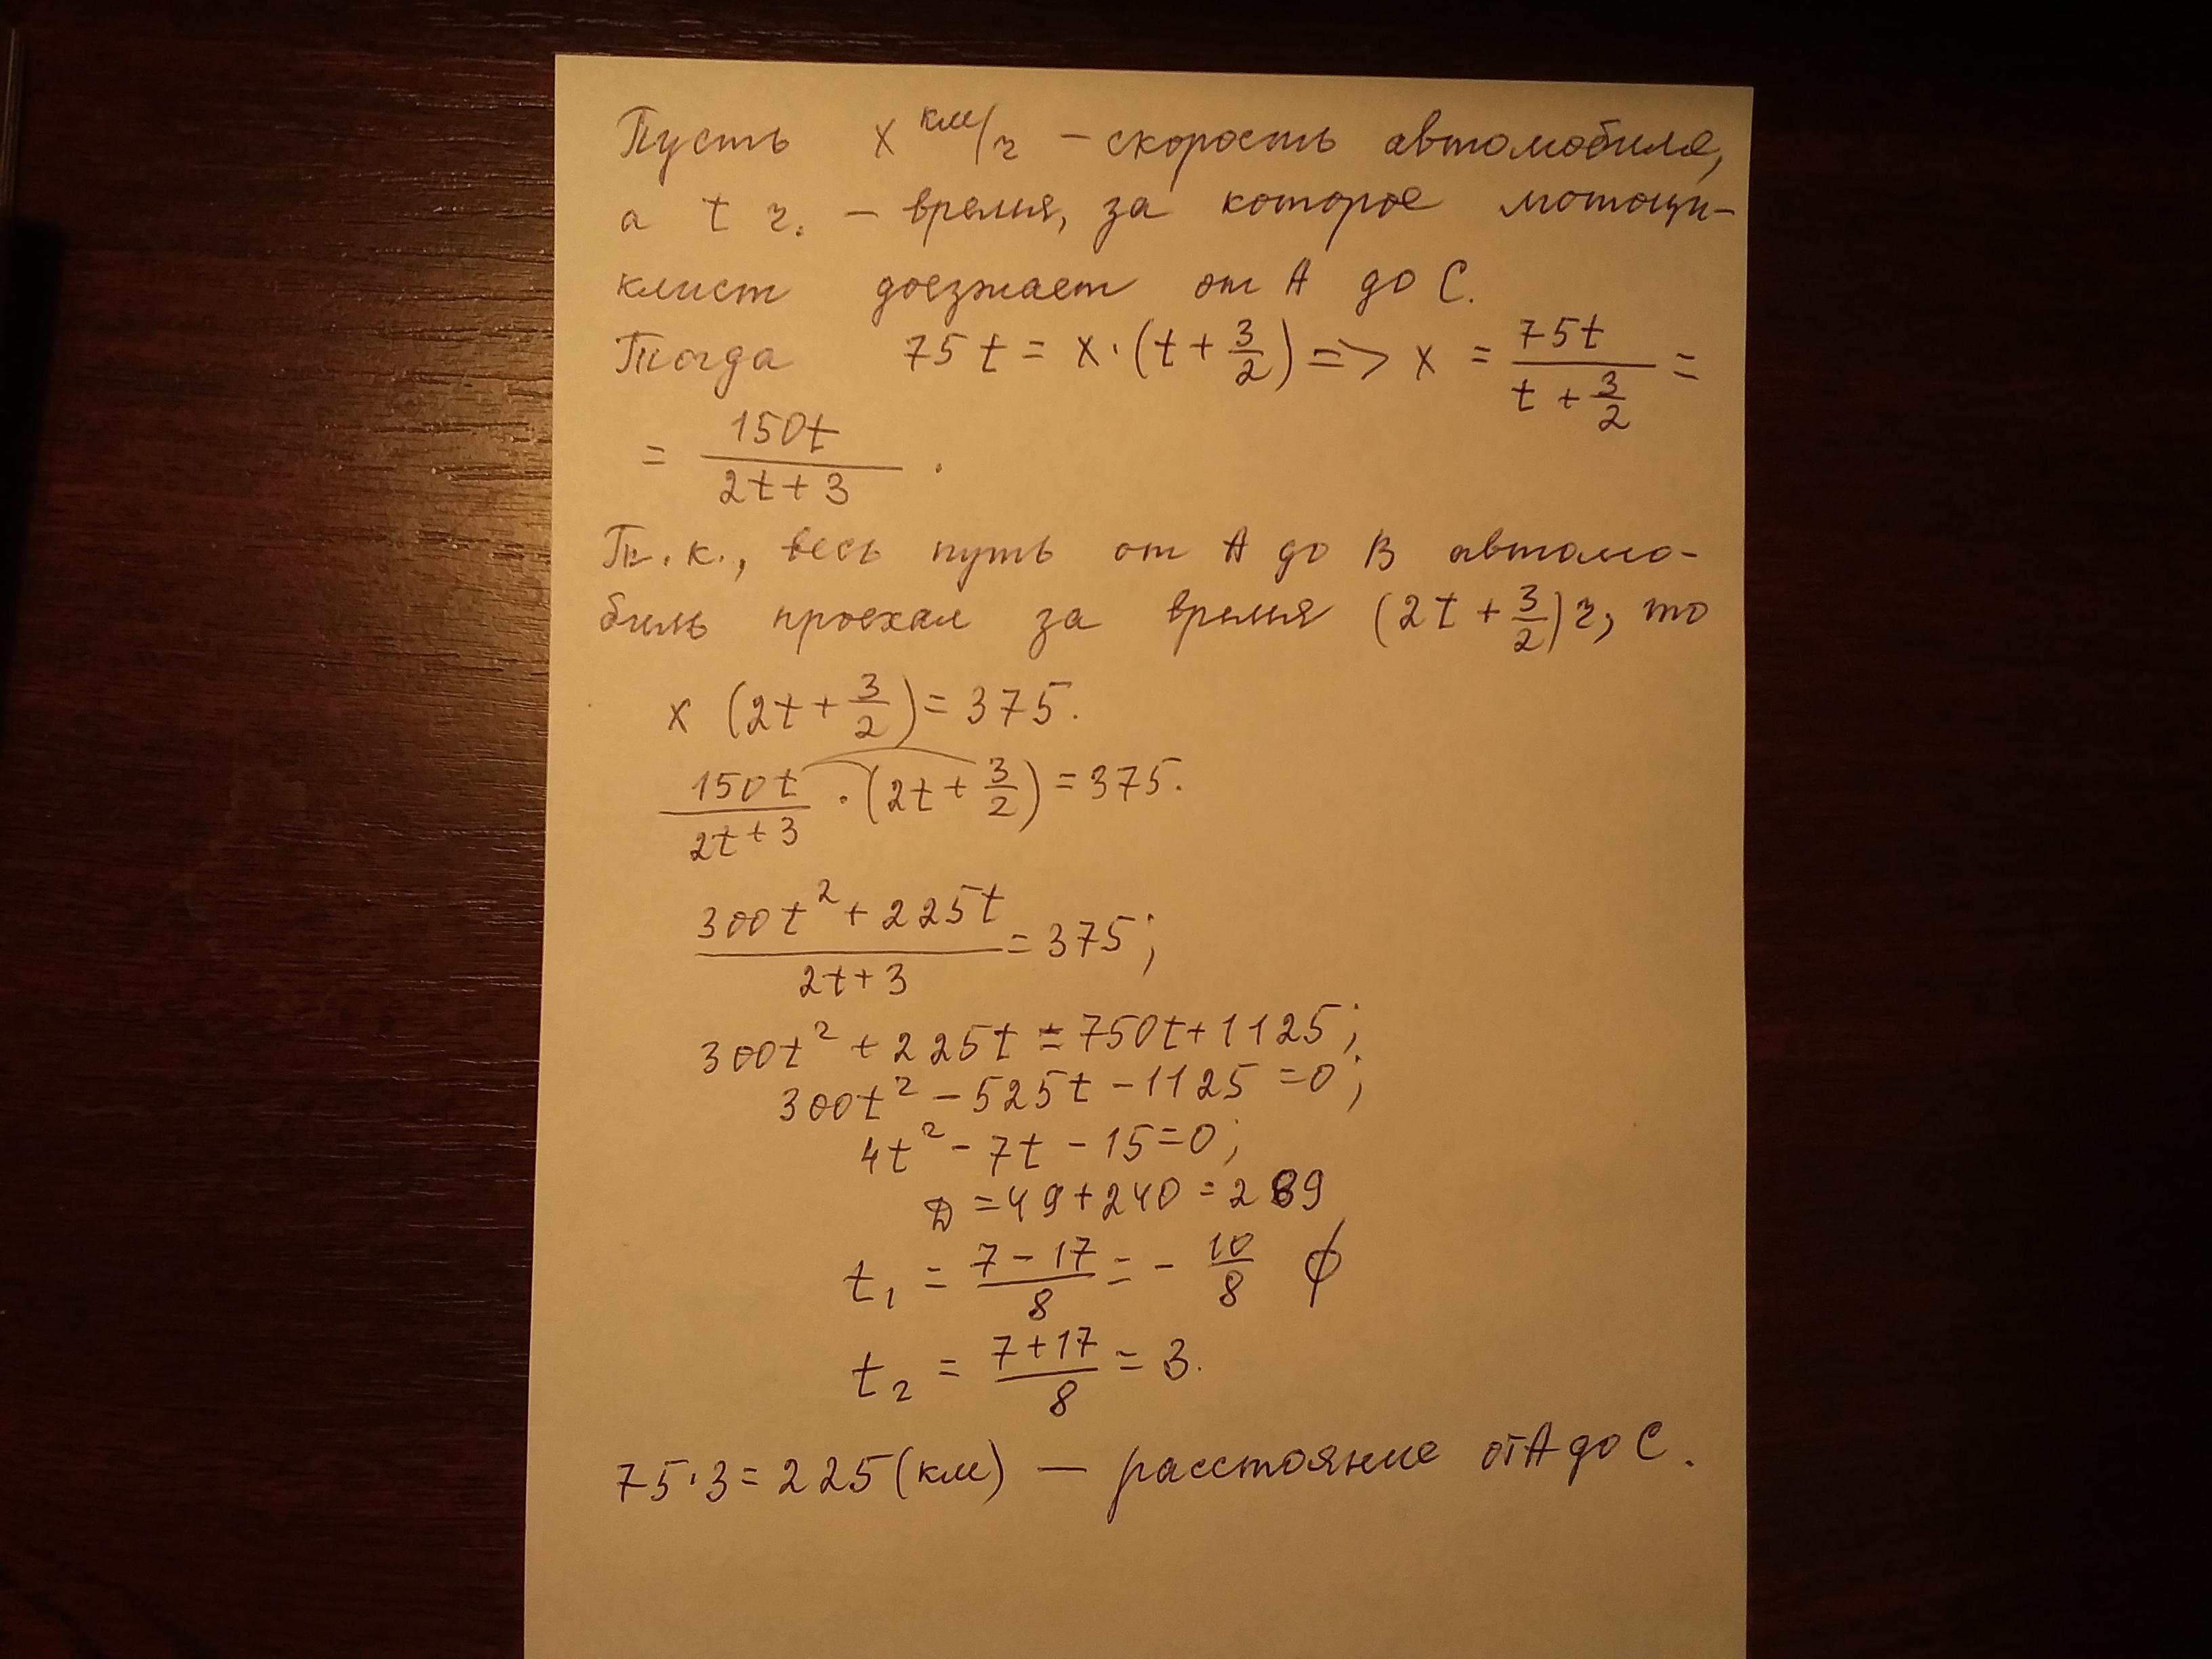 Пусть x км/ч – скорость автомобиля,
а t ч. – время, за которое мотоци-
клист доезжает от А до С.
Тогда 75t = x·(t + 3/2) => x = 75t/(t + 3/2) =
= 150t/(2t+3).
Т.к., весь путь от А до В автомо-
биль проехал за время (2t + 3/2) ч, то
x (2t + 3/2) = 375.
150t/(2t+3) · (2t + 3/2) = 375.
(300t² + 225t)/(2t+3) = 375;
300t² + 225t = 750t + 1125;
300t² – 525t – 1125 = 0;
4t² – 7t – 15 = 0;
D = 49 + 240 = 289
t₁ = (7 – 17)/8 = – 10/8 ϕ
t₂ = (7 + 17)/8 = 3.
75·3 = 225 (км) — расстояние от А до С.